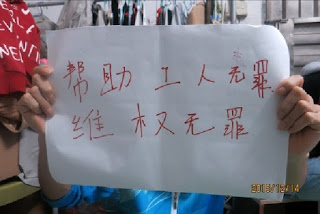 帮助工人无罪
维权无罪
2018/12/14